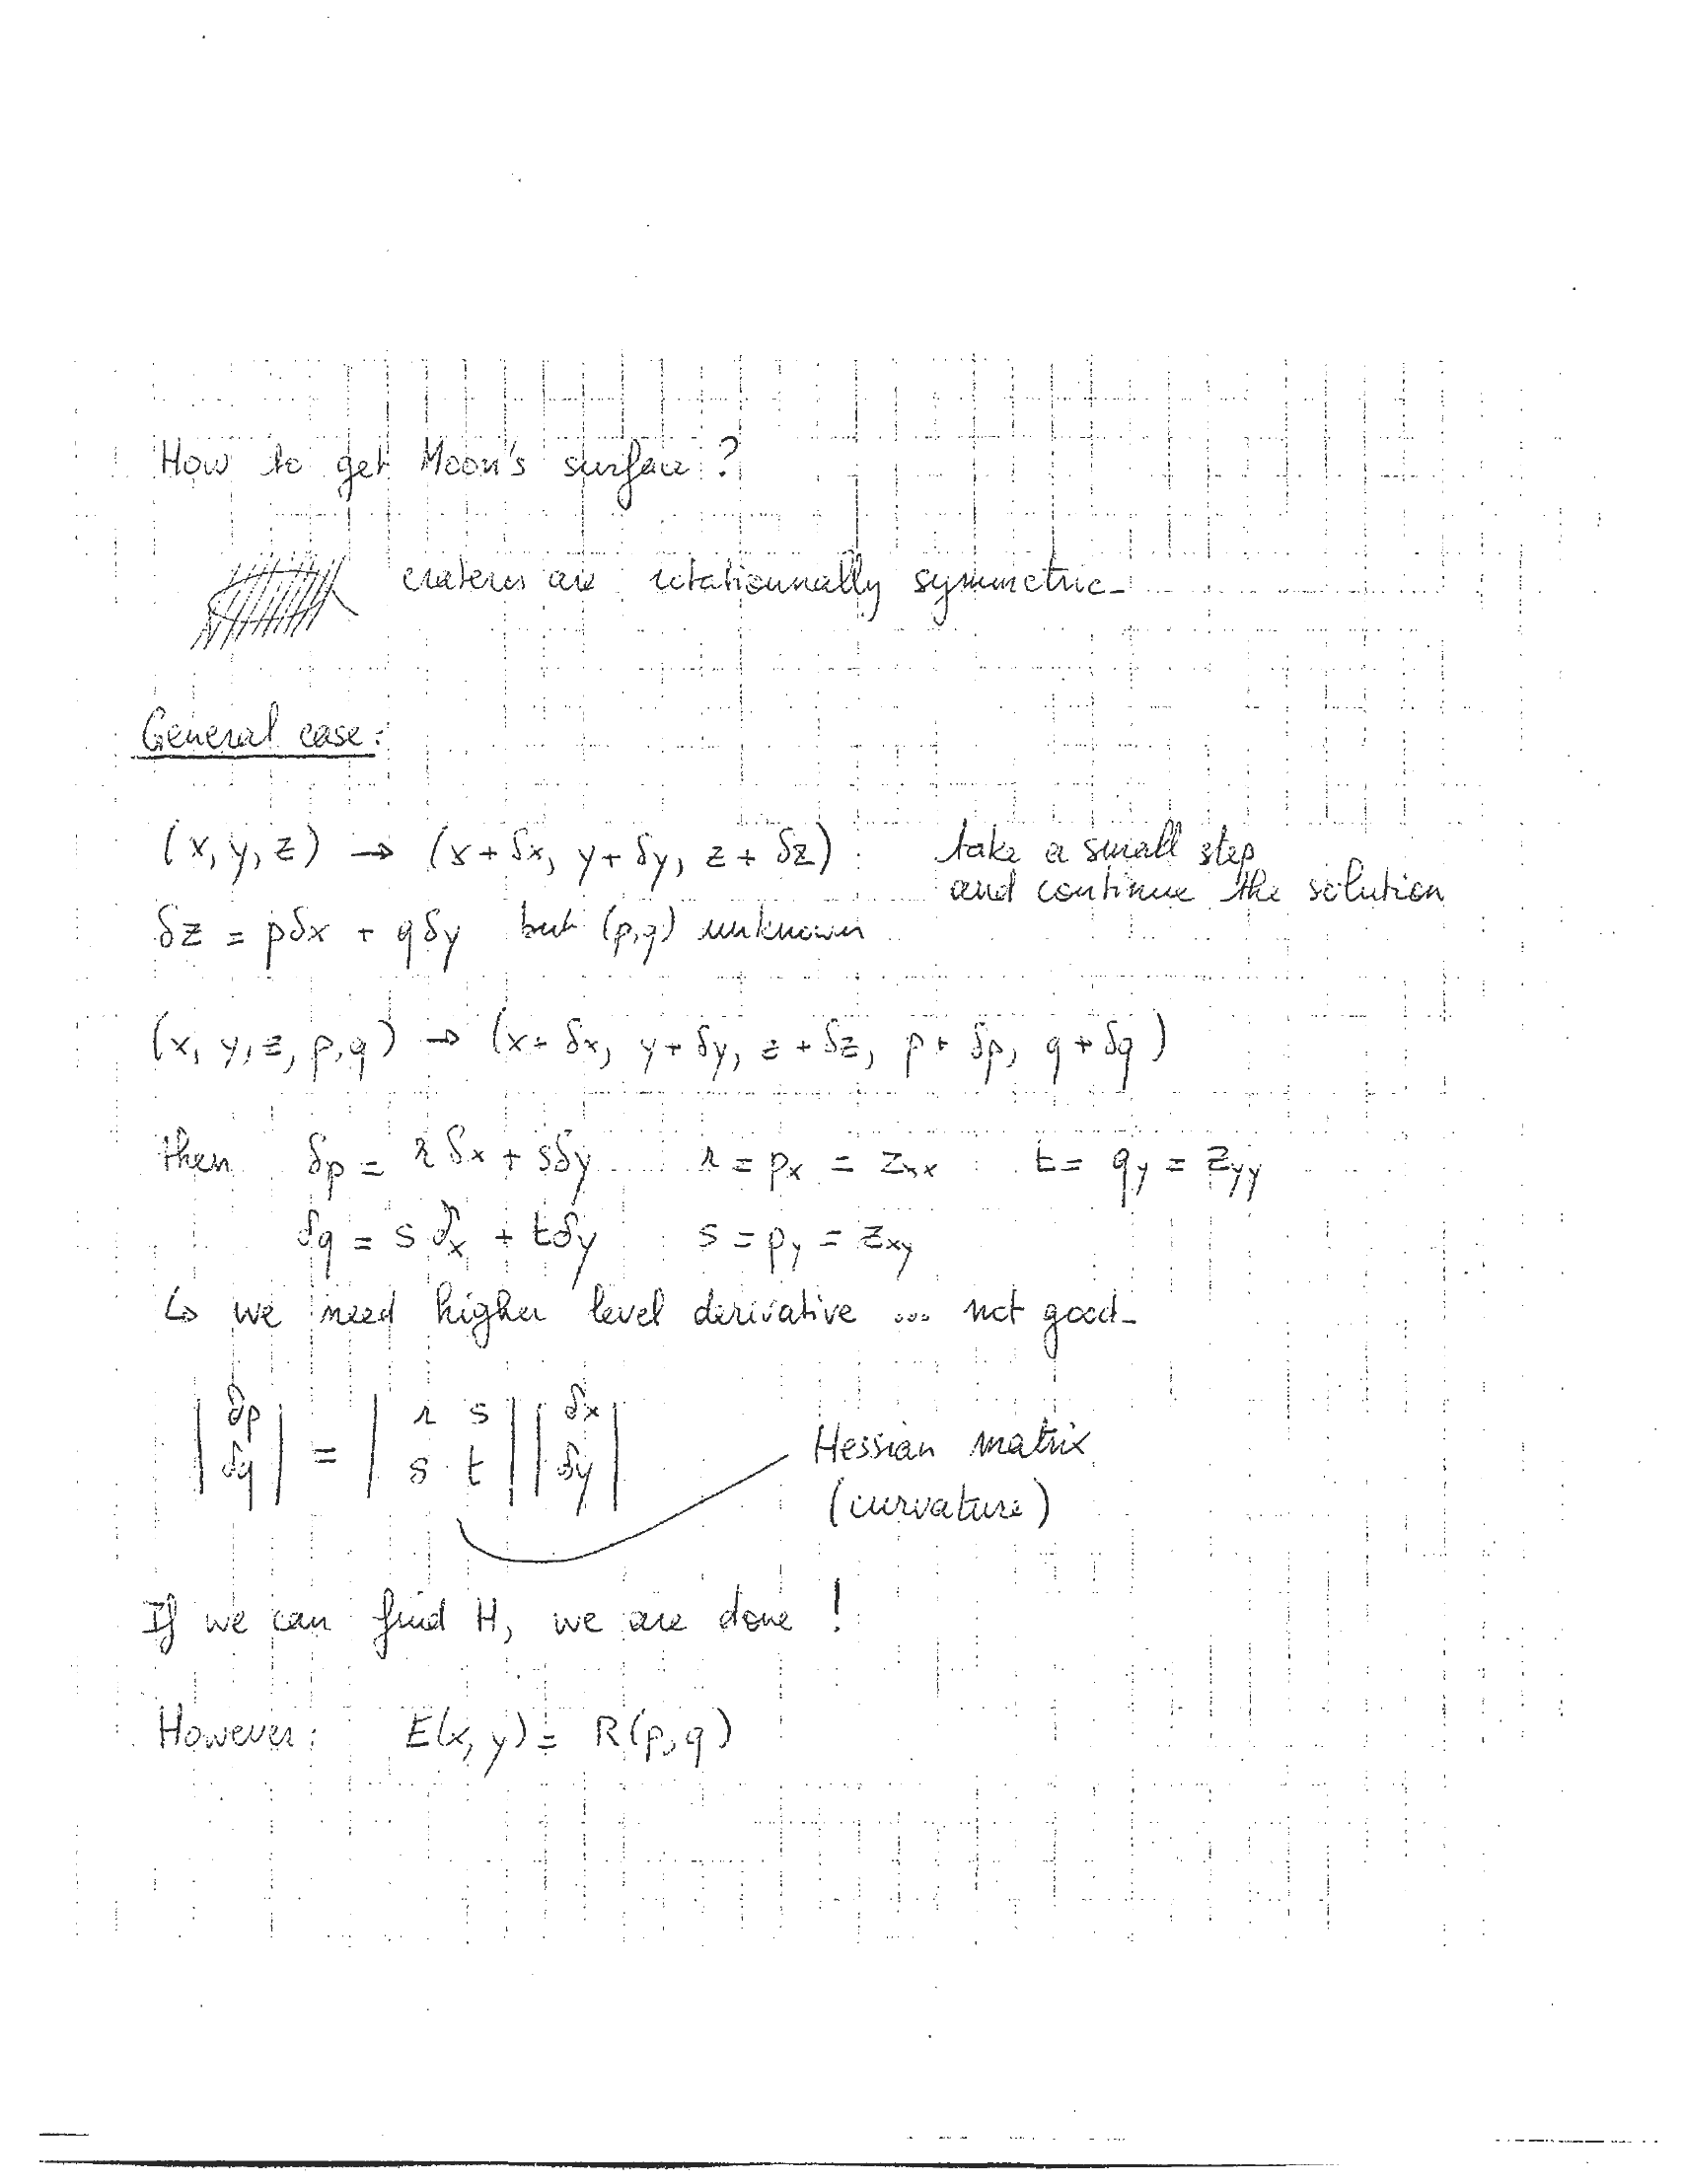 How to get Moon's surface ?
craters are rotationnally symmetric_
General case:
(x, y, z) → (x + δx, y + δy, z + δz) take a small step
and continue the solution
δz = pδx + qδy but (p,q) unknown
(x, y, z, p, q) → (x + δx, y + δy, z + δz, p + δp, q + δq)
then δp = r δx + sδy r = px = zxx t = qy = zyy
δq = s δx + tδy s = py = zxy
↳ we need higher level derivative ... not good_
| δp | = | r s | | δx |
| δq | | s t | | δy |
Hessian matrix
(curvature)
If we can find H, we are done !
However: E(x, y) = R(p, q)